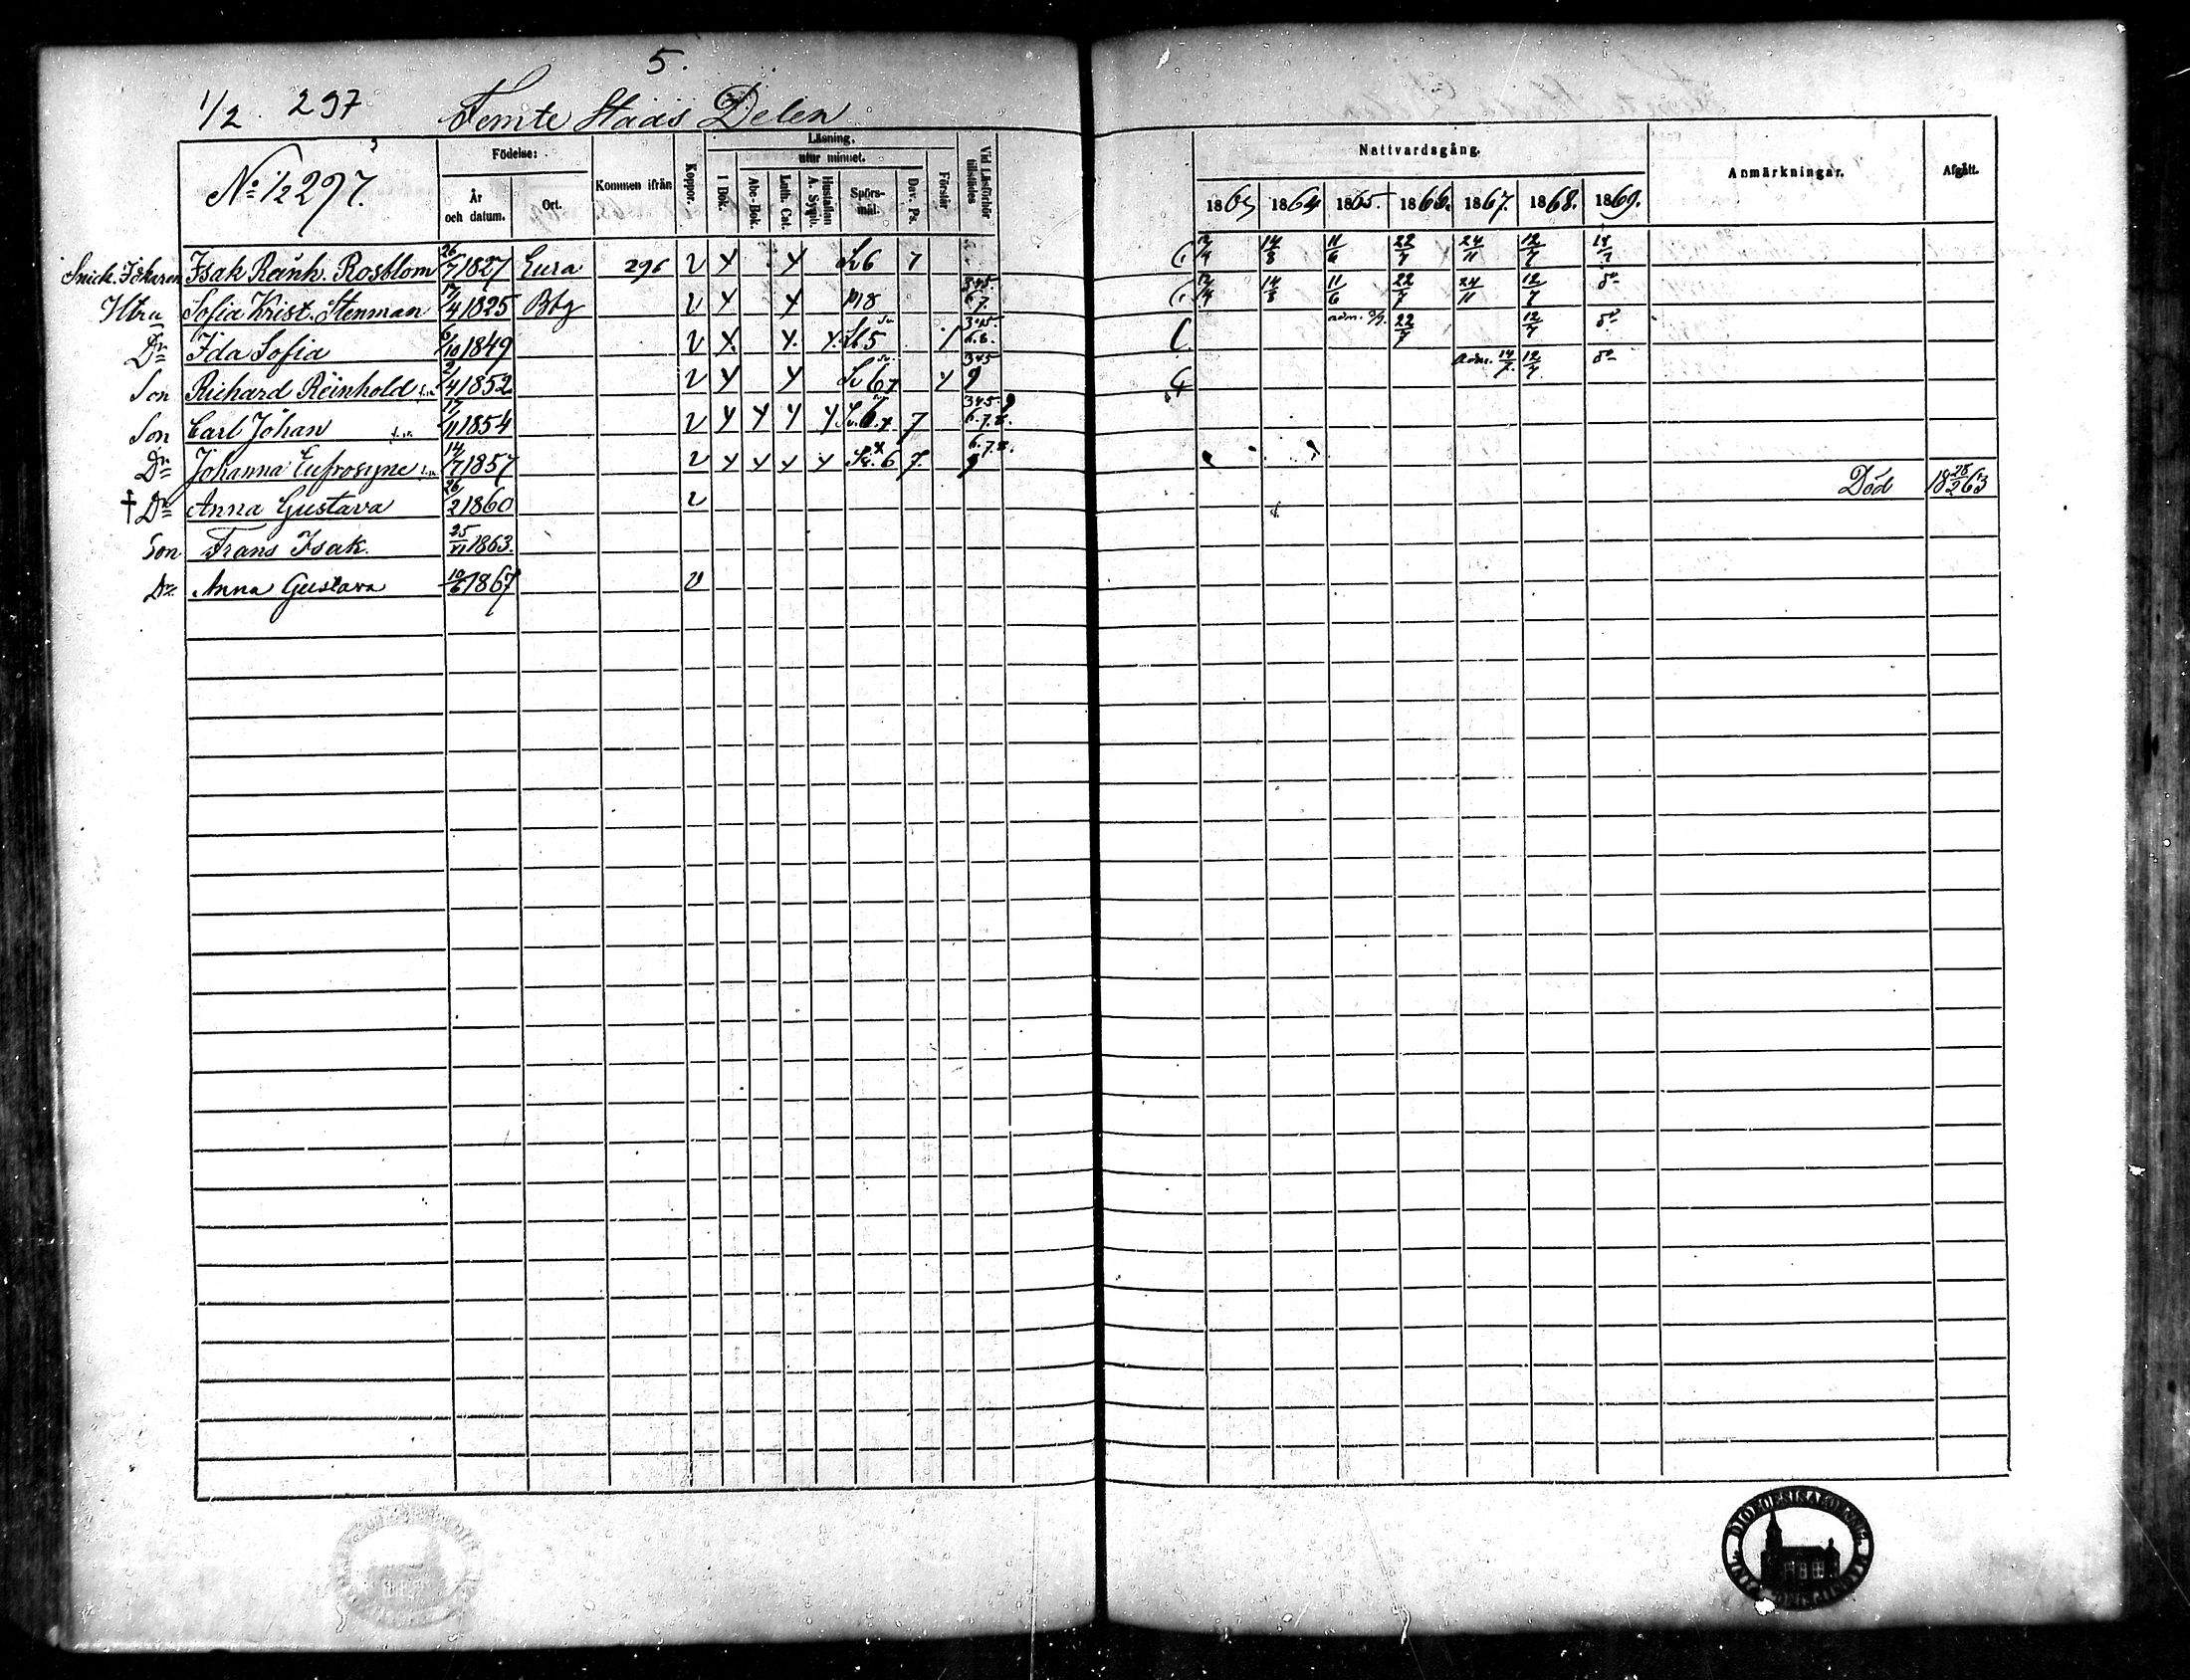 5.
1/2 297 Femte Stads Delen
No 1/2 297.
Födelse:
År och datum.
Ort.
Kommen ifrån
Koppor.
Läsning,
utur minnet.
I Bok.
Abc-Bok.
Luth. Cat.
Hustaflan A. Symb.
Spörsmål.
Dav. Ps.
Förstår
Vid Läsförhör tillstädes
Nattvardsgång.
1863 1864 1865. 1866. 1867. 1868. 1869.
Anmärkningar.
Afgått.
Isak Reinh. Rosblom 26/7 1827 Eura 296 v 6 7 14/3 11/6 22/7 24/11 12/7
Htru Sofia Krist. Stenman 17/4 1825 Bbg v 345. 6 7. 14/3 11/6 22/7 24/11 12/7 do
Dr Ida Sofia 6/10 1849 v 5 345. 6.8. C 22/7 12/7 do
Son Richard Reinhold 2/4 1852 v 345 9 Adm. 14/7 12/7 do
Son Carl Johan 17/11 1854 v 7 345. 6.7.8.
Dr Johanna Eufrosyne 14/7 1857 v 6 7. 6.7.8. 9
† Dr Anna Gustava 26/2 1860 v Död 18 28/2 63
Son Frans Isak. 25/11 1863.
Dr Anna Gustava 10/6 1867 v